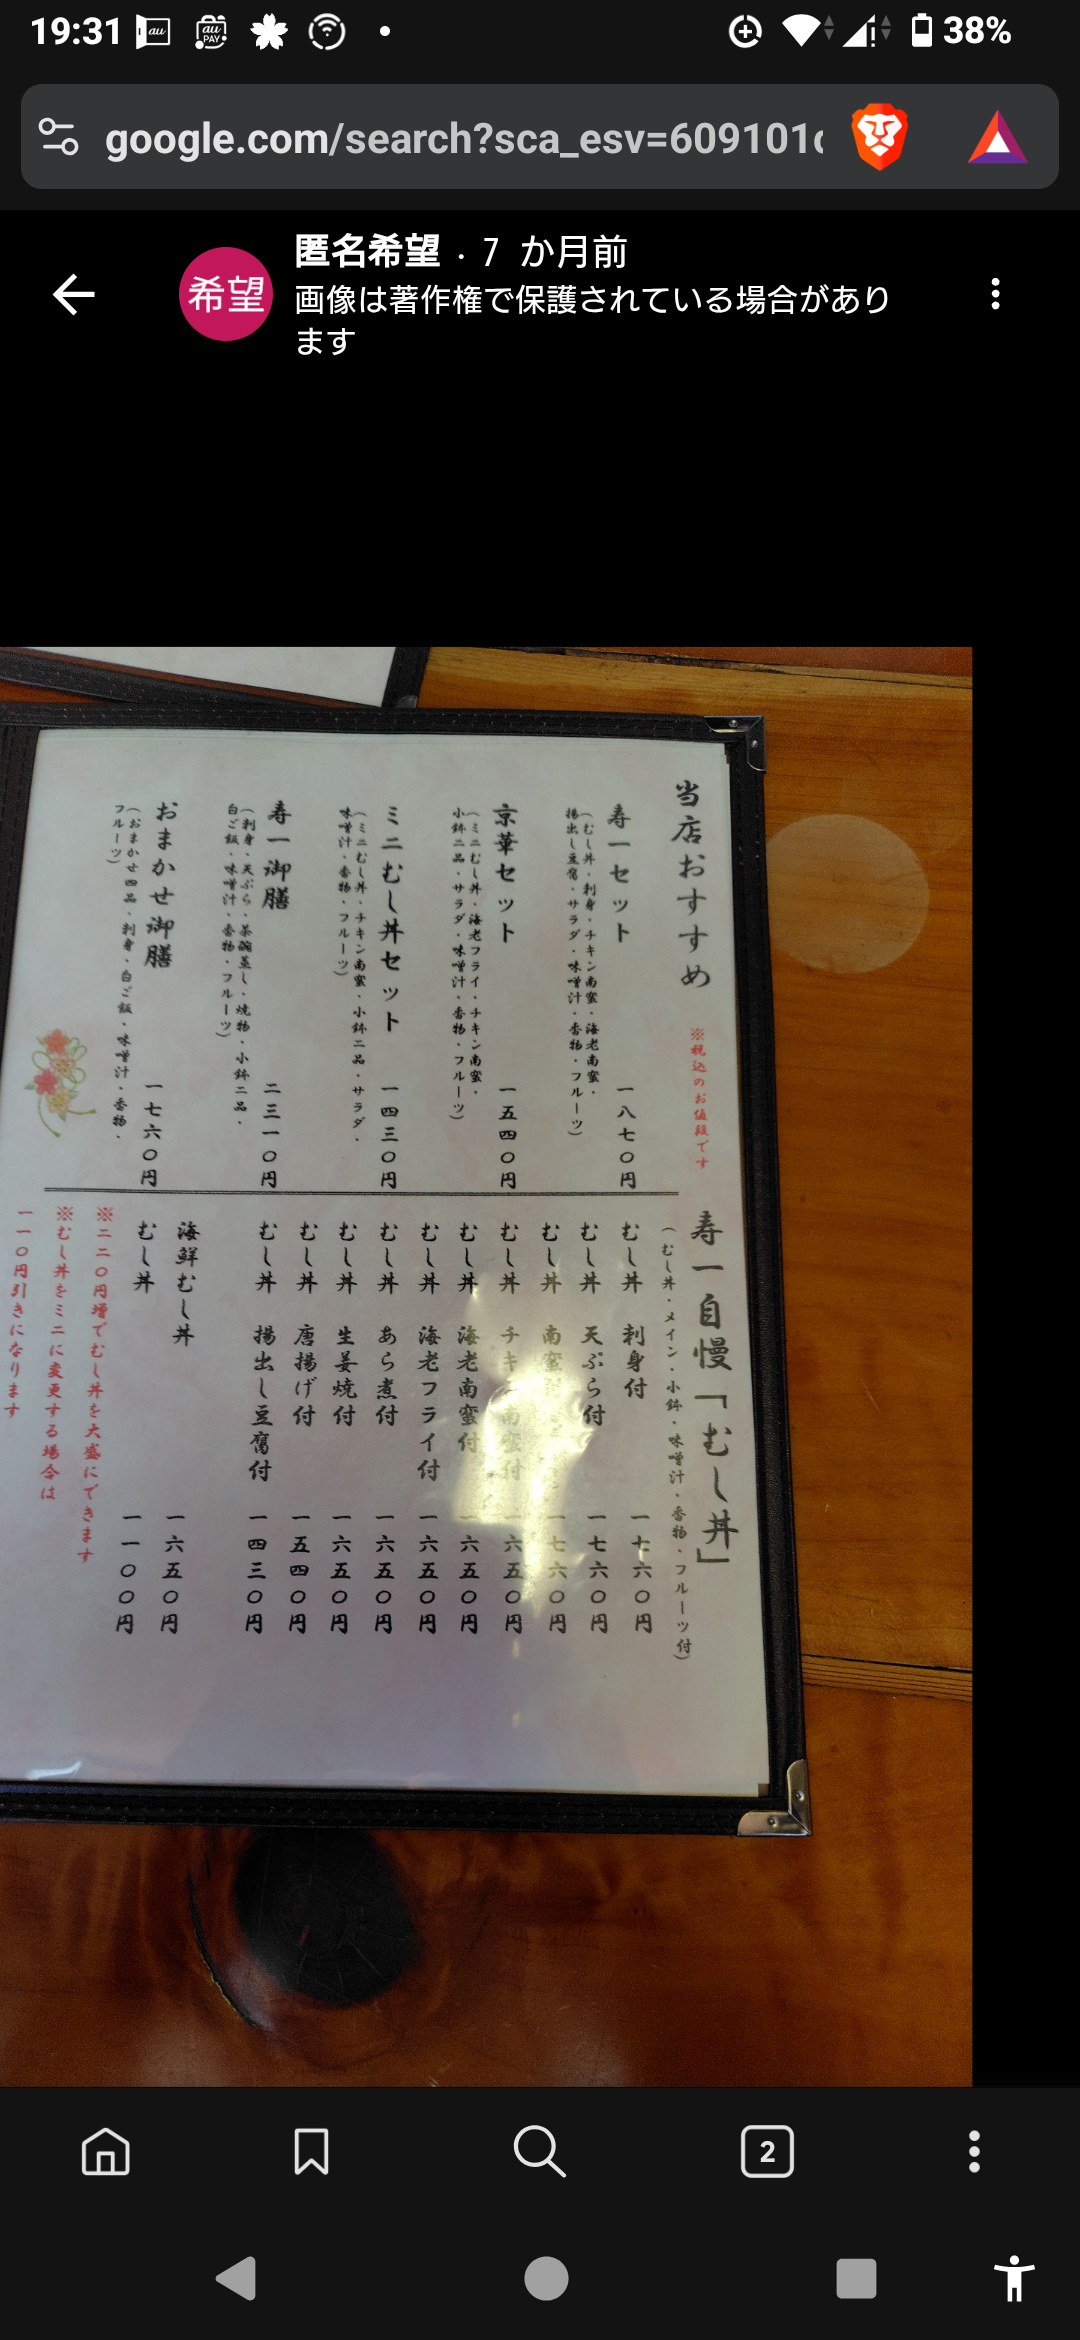 19:31
38%
google.com/search?sca_esv=609101
匿名希望 · 7 か月前
希望
画像は著作権で保護されている場合があり
ます
当店おすすめ
※税込のお値段です
寿一セット 一八七〇円
(むし丼・刺身・チキン南蛮・海老南蛮・
揚出し豆腐・サラダ・味噌汁・香物・フルーツ)
京華セット 一五四〇円
(ミニむし丼・海老フライ・チキン南蛮・
小鉢二品・サラダ・味噌汁・香物・フルーツ)
ミニむし丼セット 一四三〇円
(ミニむし丼・チキン南蛮・小鉢二品・サラダ・
味噌汁・香物・フルーツ)
寿一御膳 二三一〇円
(刺身・天ぷら・茶碗蒸し・焼物・小鉢二品・
白ご飯・味噌汁・香物・フルーツ)
おまかせ御膳 一七六〇円
(おまかせ四品・刺身・白ご飯・味噌汁・香物・
フルーツ)
寿一自慢「むし丼」
(むし丼・メイン・小鉢・味噌汁・香物・フルーツ付)
むし丼 刺身付 一七六〇円
むし丼 天ぷら付 一七六〇円
むし丼 南蛮付 一七六〇円
むし丼 チキン南蛮付 一六五〇円
むし丼 海老南蛮付 一六五〇円
むし丼 海老フライ付 一六五〇円
むし丼 あら煮付 一六五〇円
むし丼 生姜焼付 一六五〇円
むし丼 唐揚げ付 一五四〇円
むし丼 揚出し豆腐付 一四三〇円
海鮮むし丼 一六五〇円
むし丼 一一〇〇円
※二二〇円増でむし丼を大盛にできます
※むし丼をミニに変更する場合は
一一〇円引きになります
2